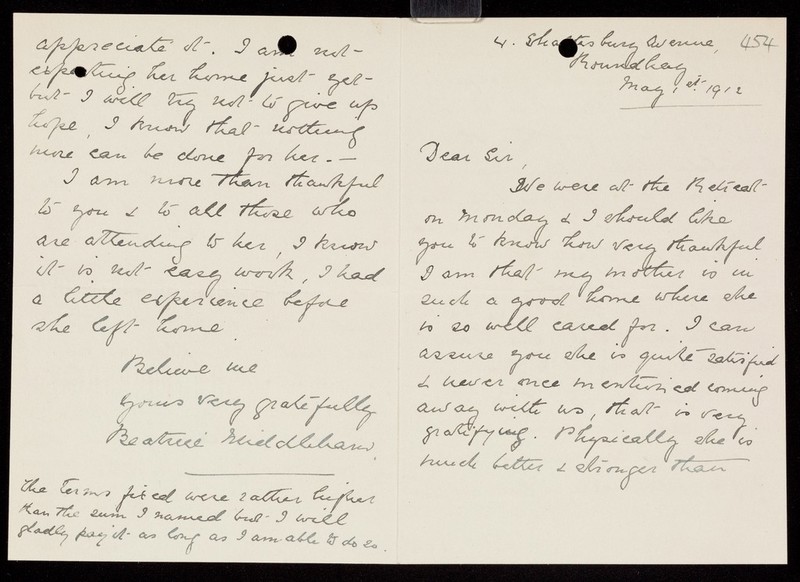 4. Shaftesbury Avenue, 454
Roundhay
May 1st 1912
Dear Sir,
We were at the Retreat
on Monday & I should like
you to know how very thankful
I am that my mother is in
such a good home where she
is so well cared for. I can
assure you she is quite satisfied
& never once mentioned coming
away with us, that is very
gratifying. Physically she is
much better & stronger than
appreciate it. I am not
expecting her home just yet
but I will try not to give up
hope, I know that nothing
more can be done for her. —
I am more than thankful
to you & to all those who
are attending to her, I know
it is not easy work, I had
a little experience before
she left home.
Believe me
yours very gratefully
Beatrice Middleham.
The terms fixed were rather higher
than the sum I named but I will
gladly pay it as long as I am able to do so.